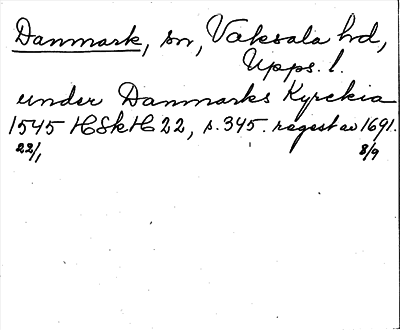 Danmark, sn, Vaksala hd,
Upps. l.
under Danmarks Kyrckia
1545 HSkH 22, s. 345. regest av 1691.
22/1 8/9